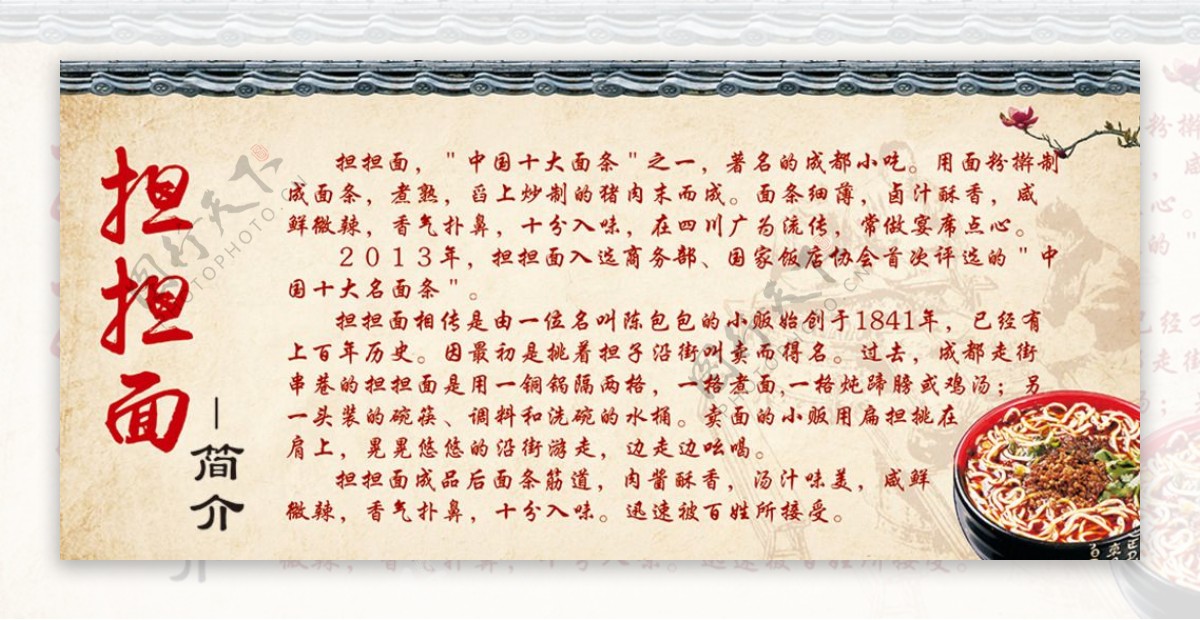 担担面
—简介
担担面，"中国十大面条"之一，著名的成都小吃。用面粉擀制
成面条，煮熟，舀上炒制的猪肉末而成。面条细薄，卤汁酥香，咸
鲜微辣，香气扑鼻，十分入味，在四川广为流传，常做宴席点心。
２０１３年，担担面入选商务部、国家饭店协会首次评选的"中
国十大名面条"。
担担面相传是由一位名叫陈包包的小贩始创于1841年，已经有
上百年历史。因最初是挑着担子沿街叫卖而得名。过去，成都走街
串巷的担担面是用一铜锅隔两格，一格煮面,一格炖蹄膀或鸡汤；另
一头装的碗筷、调料和洗碗的水桶。卖面的小贩用扁担挑在
肩上，晃晃悠悠的沿街游走，边走边吆喝。
担担面成品后面条筋道，肉酱酥香，汤汁味美，咸鲜
微辣，香气扑鼻，十分入味。迅速被百姓所接受。